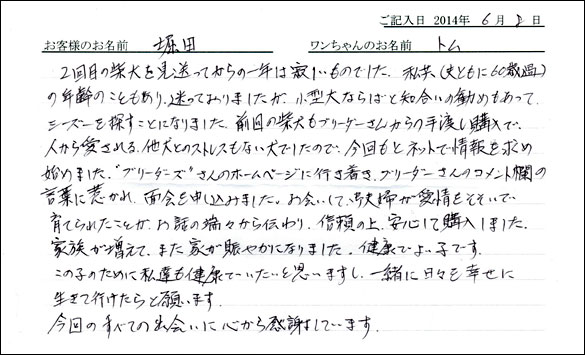 ご記入日 2014年 6月 8日
お客様のお名前 堀田 ワンちゃんのお名前 トム
2回目の柴犬を見送ってからの一年は寂しいものでした。私共(夫ともに60歳過)
の年齢のこともあり、迷っておりましたが、小型犬ならばと知合いの勧めもあって
シーズーを探すことになりました。前回の柴犬もブリーダーさんからの手渡し購入で、
人から愛される、他犬とのストレスもない犬でしたので、今回もとネットで情報を求め
始めました。"ブリーダーズ"さんのホームページに行き着き、ブリーダーさんのコメント欄の
言葉に惹かれ、面会を申し込みました。お会いして、ご夫婦が愛情をそそいで
育てられたことが、お話の端々から伝わり、信頼の上、安心して購入しました。
家族が増えて、また家が賑やかになりました。健康でよい子です。
この子のために私達も健康でいたいと思いますし、一緒に日々を幸せに
生きて行けたらと願います。
今回のすべての出会いに心から感謝しています。